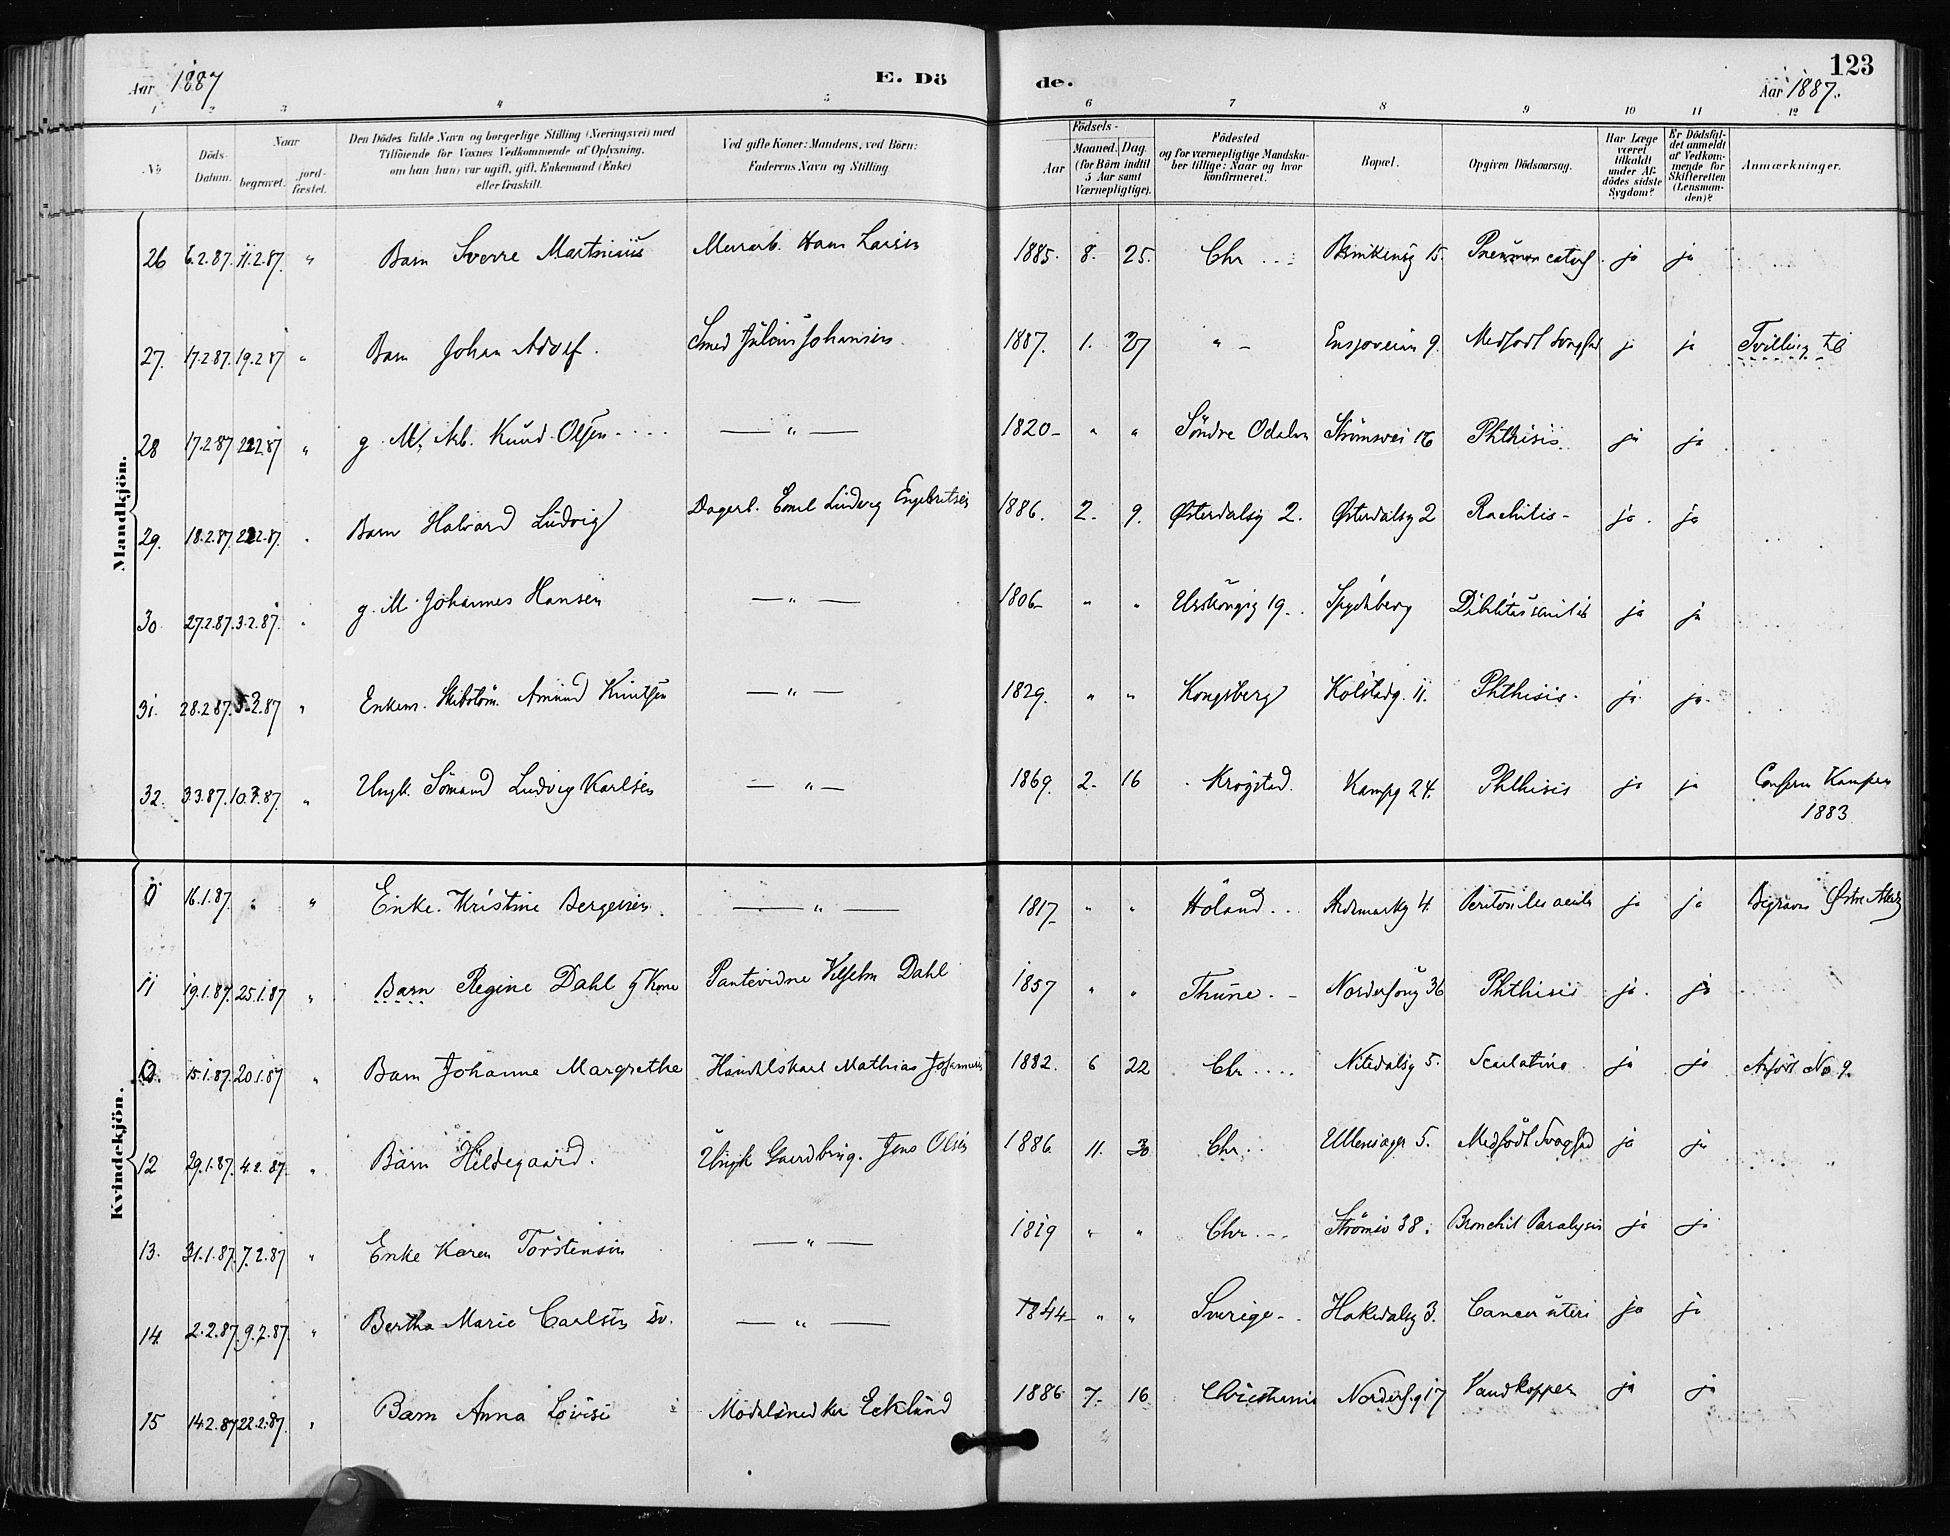 Aar 1887
E. Dö
de.
123
Aar 1887.
1 2 3 4 5 6 7 8 9 10 11 12
№
Döds-Datum.
Naar
begravet.
jord-fæstet.
Den Dödes fulde Navn og borgerlige Stilling (Næringsvei) med
Tilföiende for Voxnes Vedkommende af Oplysning,
om han (hun) var ugift, gift, Enkemand (Enke)
eller fraskilt.
Ved gifte Koner: Mandens, ved Börn:
Faderens Navn og Stilling
Födsels-
Aar
Maaned. Dag.
(for Börn indtil
5 Aar samt
Værnepligtige).
Födested
og for værnepligtige Mandska-
ber tillige: Naar og hvor
konfirmeret.
Bopæl.
Opgiven Dödsaarsag.
Har Læge
været
tilkaldt
under Af-
dødes sidste
Sygdom?
Er Dödsfal-
det anmeldt
af Vedkom-
mende for
Skifteretten
(Lensman-
den)?
Anmærkninger.
Mandkjön.
26 6.2.87. 11.2.87. " Barn Sverre Martinius Murarb. Hans Larsen 1885. 8. 25. Chr. 15. ja ja
27. 17.2.87. 19.2.87 " Barn Johan Adolf. Smed Julius Johansen 1887. 1. 27 " Ensjoveien 9. Medfødt Svaghed ja ja Tvilling til
28 17.2.87 22.2.87 " g. M. Arb. Knud Olsen — " — 1820 " " Söndre Odalen Strömsvei 16 Phthisis ja ja
29. 18.2.87. 22.2.87. " Barn Halvard Ludvig Dagarb. Emil Ludvig Engebretsen 1886. 2. 9. Østerdalsg 2. Østerdalsg 2 Rachitis ja ja
30 27.2.87. 3.2.87. " g. M. Johannes Hansen — " — 1806 " " Urskougsg 19. Spydeberg Debilitas senilis ja ja
31. 28.2.87. 5.2.87 " Enkem. Skibstöm. Amund Knutsen — " — 1829. " " Kongsberg Kolstadg. 11. Phthisis ja ja
32. 3.3.87. 10.3.87. " Ungk. Sömand Ludvig Karlsen — " — 1869. 2. 16 Krogstad. Kampg 24. Phthisis ja ja Confirm Kampen
1883
Kvindekjön.
0 16.1.87. " " Enke Kristine Bergersen — " — 1817 " " Höland Hedemarksg 4. Peritonites acuta ja ja Begraves Østre Aker
11 19.1.87. 25.1.87 " Barn Regine Dahl g Kone Pantevidne Vilhelm Dahl 1857 " " Thune Nordersöng 36 Phthisis ja ja
0. 15.1.87. 20.1.87 " Barn Johanne Margrethe Handelskarl Mathias Johannesen 1882. 6 22 Chr. Nitedalsg 5. Scarlatina ja ja Anført No 9.
12 29.1.87. 4.2.87. " Barn Hildegaard. Ungk Jens Olsen 1886 11. 30 Chr. Ullensager 5. Medfödt Svaghed ja ja
13. 31.1.87. 7.2.87 " Enke Karen Torstensen — " — 1819 " " Chr. Strömsv 38. Bronchit Paralysis ja ja
14 2.2.87. 9.2.87. " Bertha Marie Carlsen sv. — " — 1844 " " Sverige Hakedalsg 3. Cancer uteri ja ja
15 14.2.87 22.2.87. " Barn Anna Lovise Modelsnedker Ecklund 1886 7. 16 Christiania 17 Vandkopper ja ja